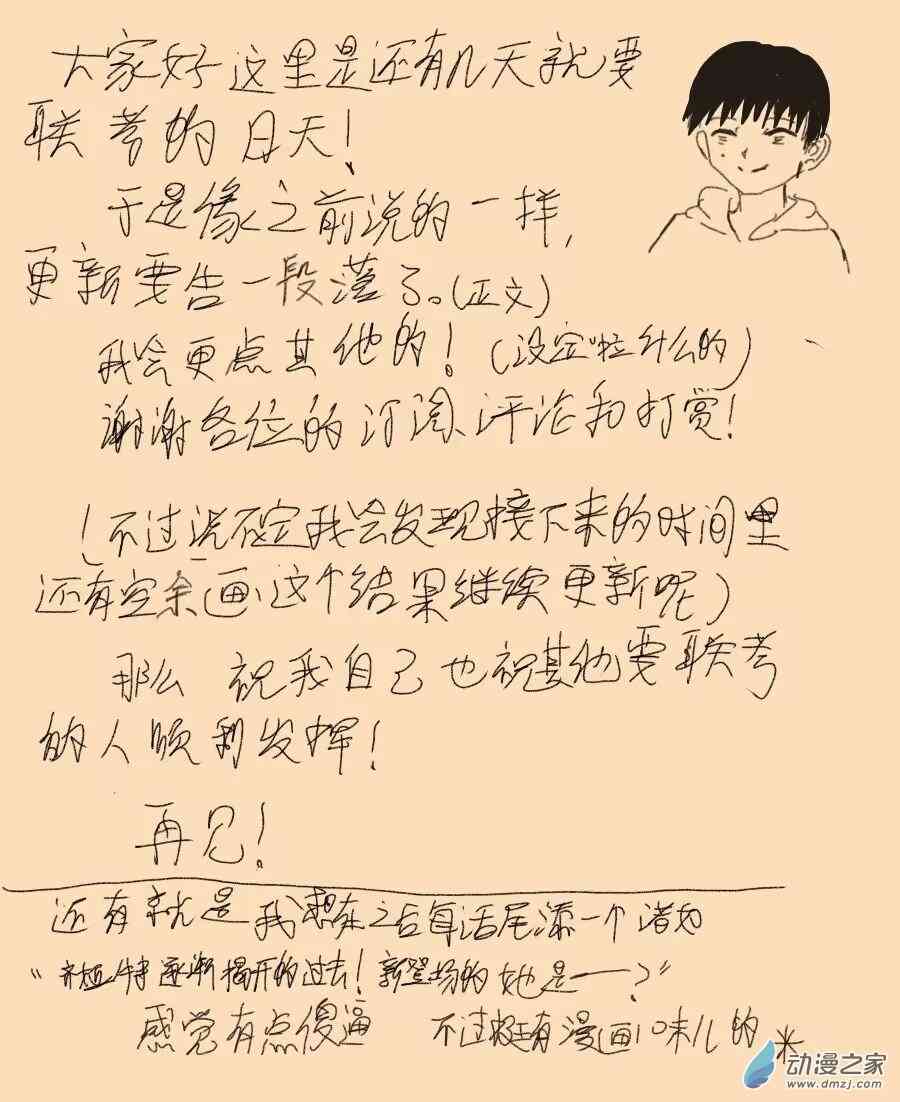 大家好 这里是还有几天就要
联考的日天！
于是像之前说的一样，
更新要告一段落了。(正文)
我会更点其他的！(设定啦什么的)
谢谢各位的订阅、评论和打赏！
(不过说不定我会发现接下来的时间里
还有空余画这个结果继续更新呢)
那么 祝我自己也祝其他要联考
的人顺利发挥！
再见！
还有就是我想在之后每话尾添一个诸如
"逐渐揭开的过去！新登场的她是——？"
感觉有点傻逼 不过挺有漫画味儿的*
动漫之家
www.dmzj.com